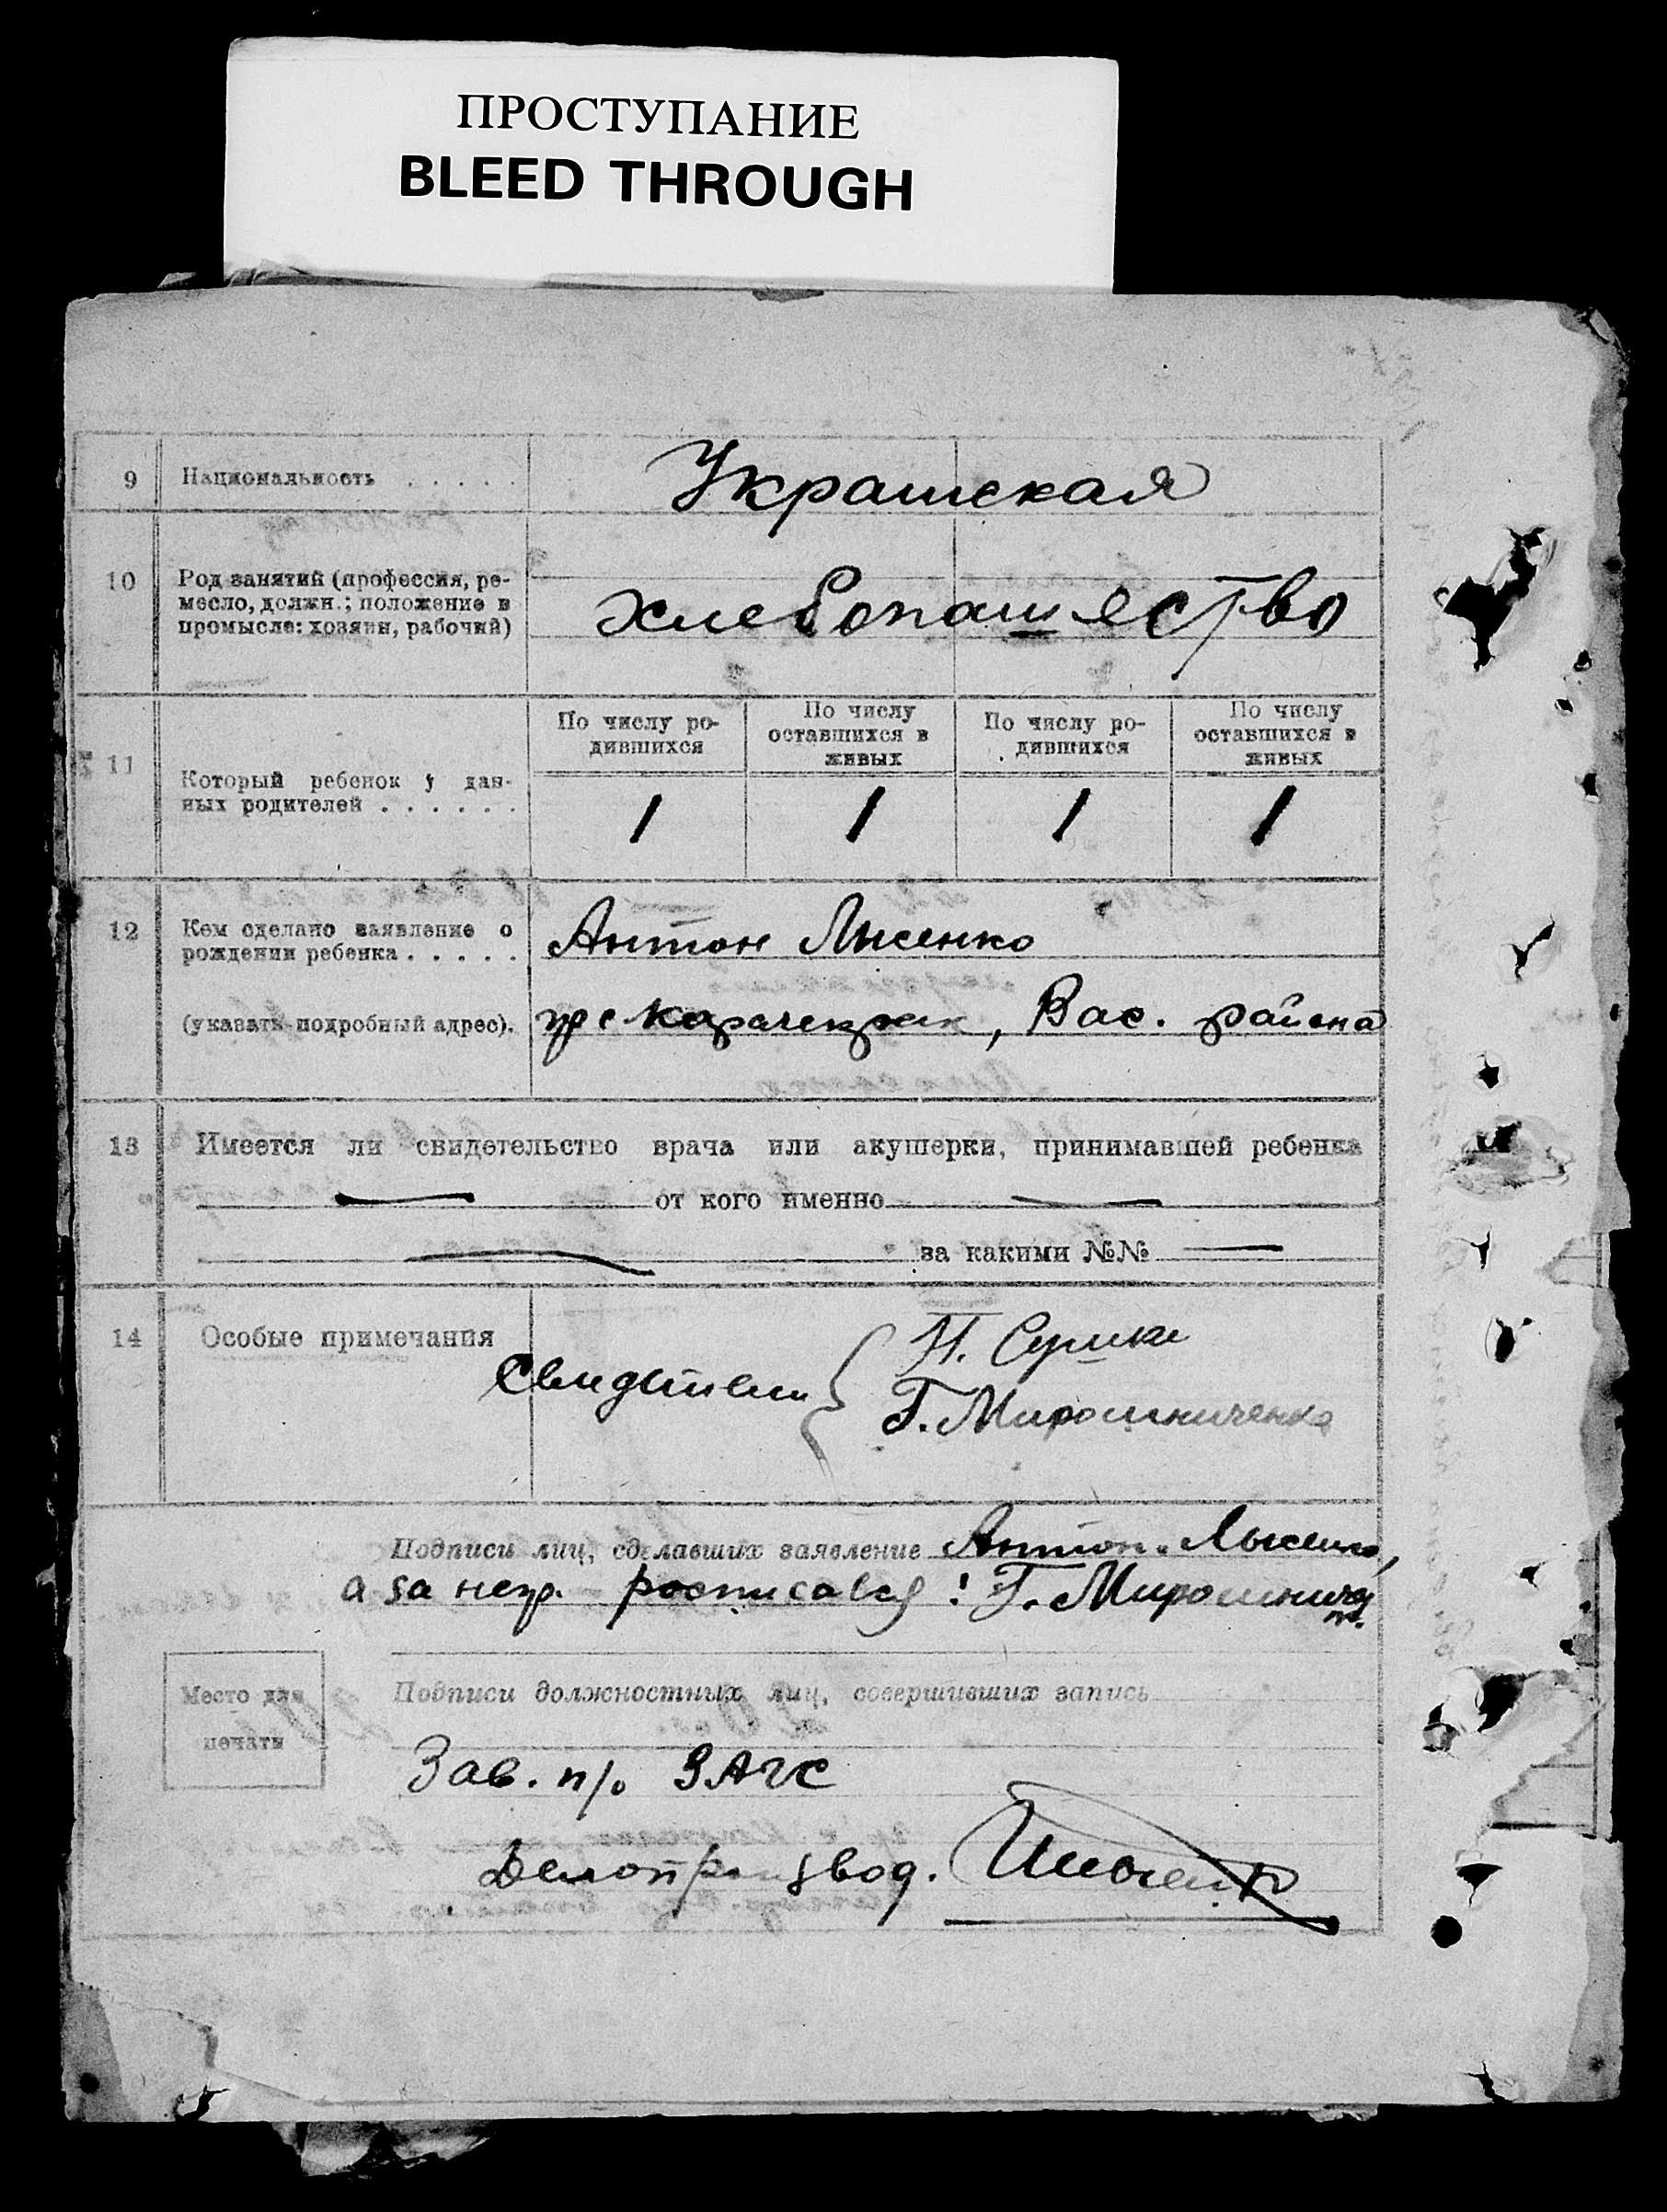 ПРОСТУПАНИЕ
BLEED THROUGH
9 Национальность . . . . . Украинская
10 Род занятий (профессия, ре-
месло, должн.; положение в
промысле: хозяин, рабочий)
хлебопашество
11 Который ребенок у дан-
ных родителей . . . . . .
По числу ро-
дившихся
По числу
оставшихся в
живых
По числу ро-
дившихся
По числу
оставшихся в
живых
1 1 1 1
12 Кем сделано заявление о
рождении ребенка . . . . .
Антон Лысенко
(указать подробный адрес).
гр с Карачекрак, Вас. района
13 Имеется ли свидетельство врача или акушерки, принимавшей ребенка
— от кого именно —
— за какими №№ —
14 Особые примечания
Свидетели { П. Сушко
Г. Мирошниченко
Подписи лиц, сделавших заявление Антон Лысенко,
а за негр. росписался: Г. Мирошнич
Место для
печати
Подписи должностных лиц, совершивших запись
Зав. п/о ЗАГС
Делопроизвод.